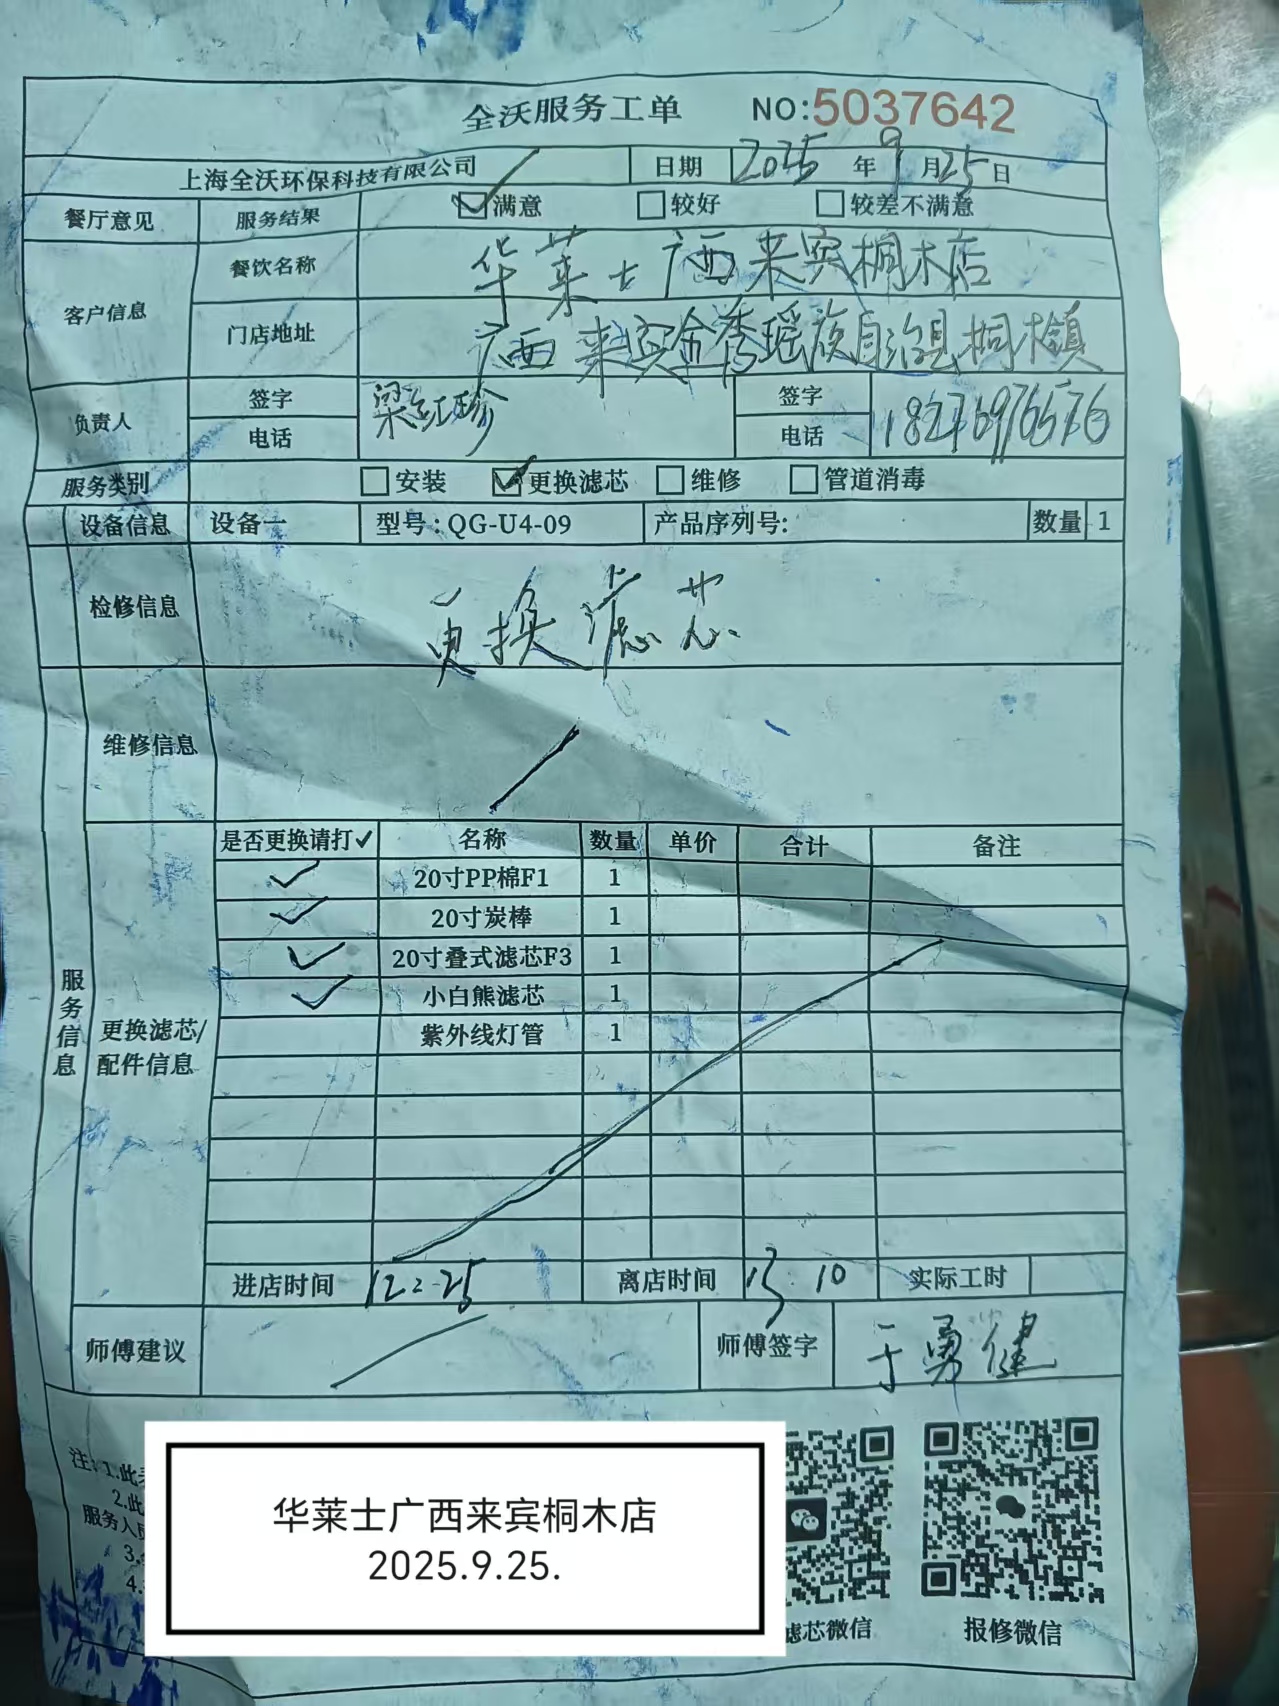 全沃服务工单 NO:5037642
上海全沃环保科技有限公司 日期 2025 年 9 月 25 日
餐厅意见 服务结果 满意 较好 较差不满意
客户信息 餐饮名称 华莱士广西来宾桐木店
门店地址 广西来宾金秀瑶族自治县桐木镇
负责人 签字 梁红珍 签字
电话 电话
服务类别 安装 更换滤芯 维修 管道消毒
设备信息 设备一 型号:QG-U4-09 产品序列号: 数量 1
检修信息 更换滤芯
维修信息
服务信息
是否更换请打✓ 名称 数量 单价 合计 备注
✓ 20寸PP棉F1 1
✓ 20寸炭棒 1
✓ 20寸叠式滤芯F3 1
✓ 小白熊滤芯 1
紫外线灯管 1
更换滤芯/
配件信息
进店时间 12:25 离店时间 13:10 实际工时
师傅建议 师傅签字 于勇健
注:1.此
2.此
服务人
3.
4.
华莱士广西来宾桐木店
2025.9.25.
滤芯微信 报修微信